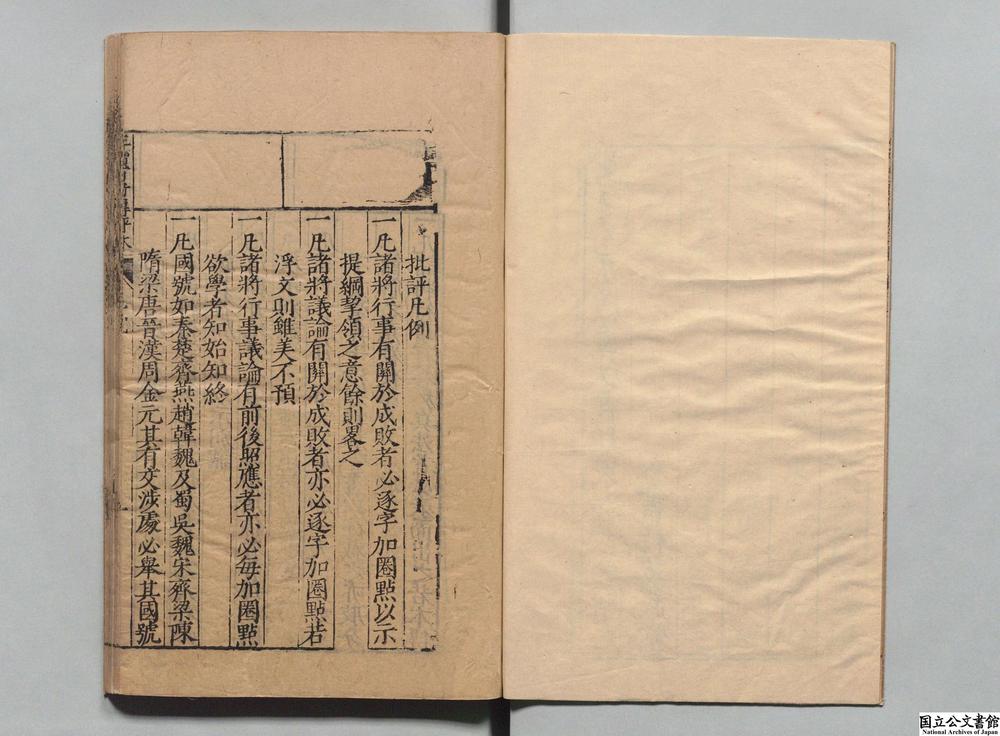 批評凡例
一凡諸將行事有關於成敗者必逐字加圈點以示
提綱挈領之意餘則畧之
一凡諸將議論有關於成敗者亦必逐字加圈點若
浮文則雖美不預
一凡諸將行事議論有前後照應者亦必每加圈點
欲學者知始知終
一凡國號如秦楚齊燕趙韓魏及蜀吳魏宋齊梁陳
隋梁唐晉漢周金元其有交涉處必舉其國號
国立公文書館
National Archives of Japan